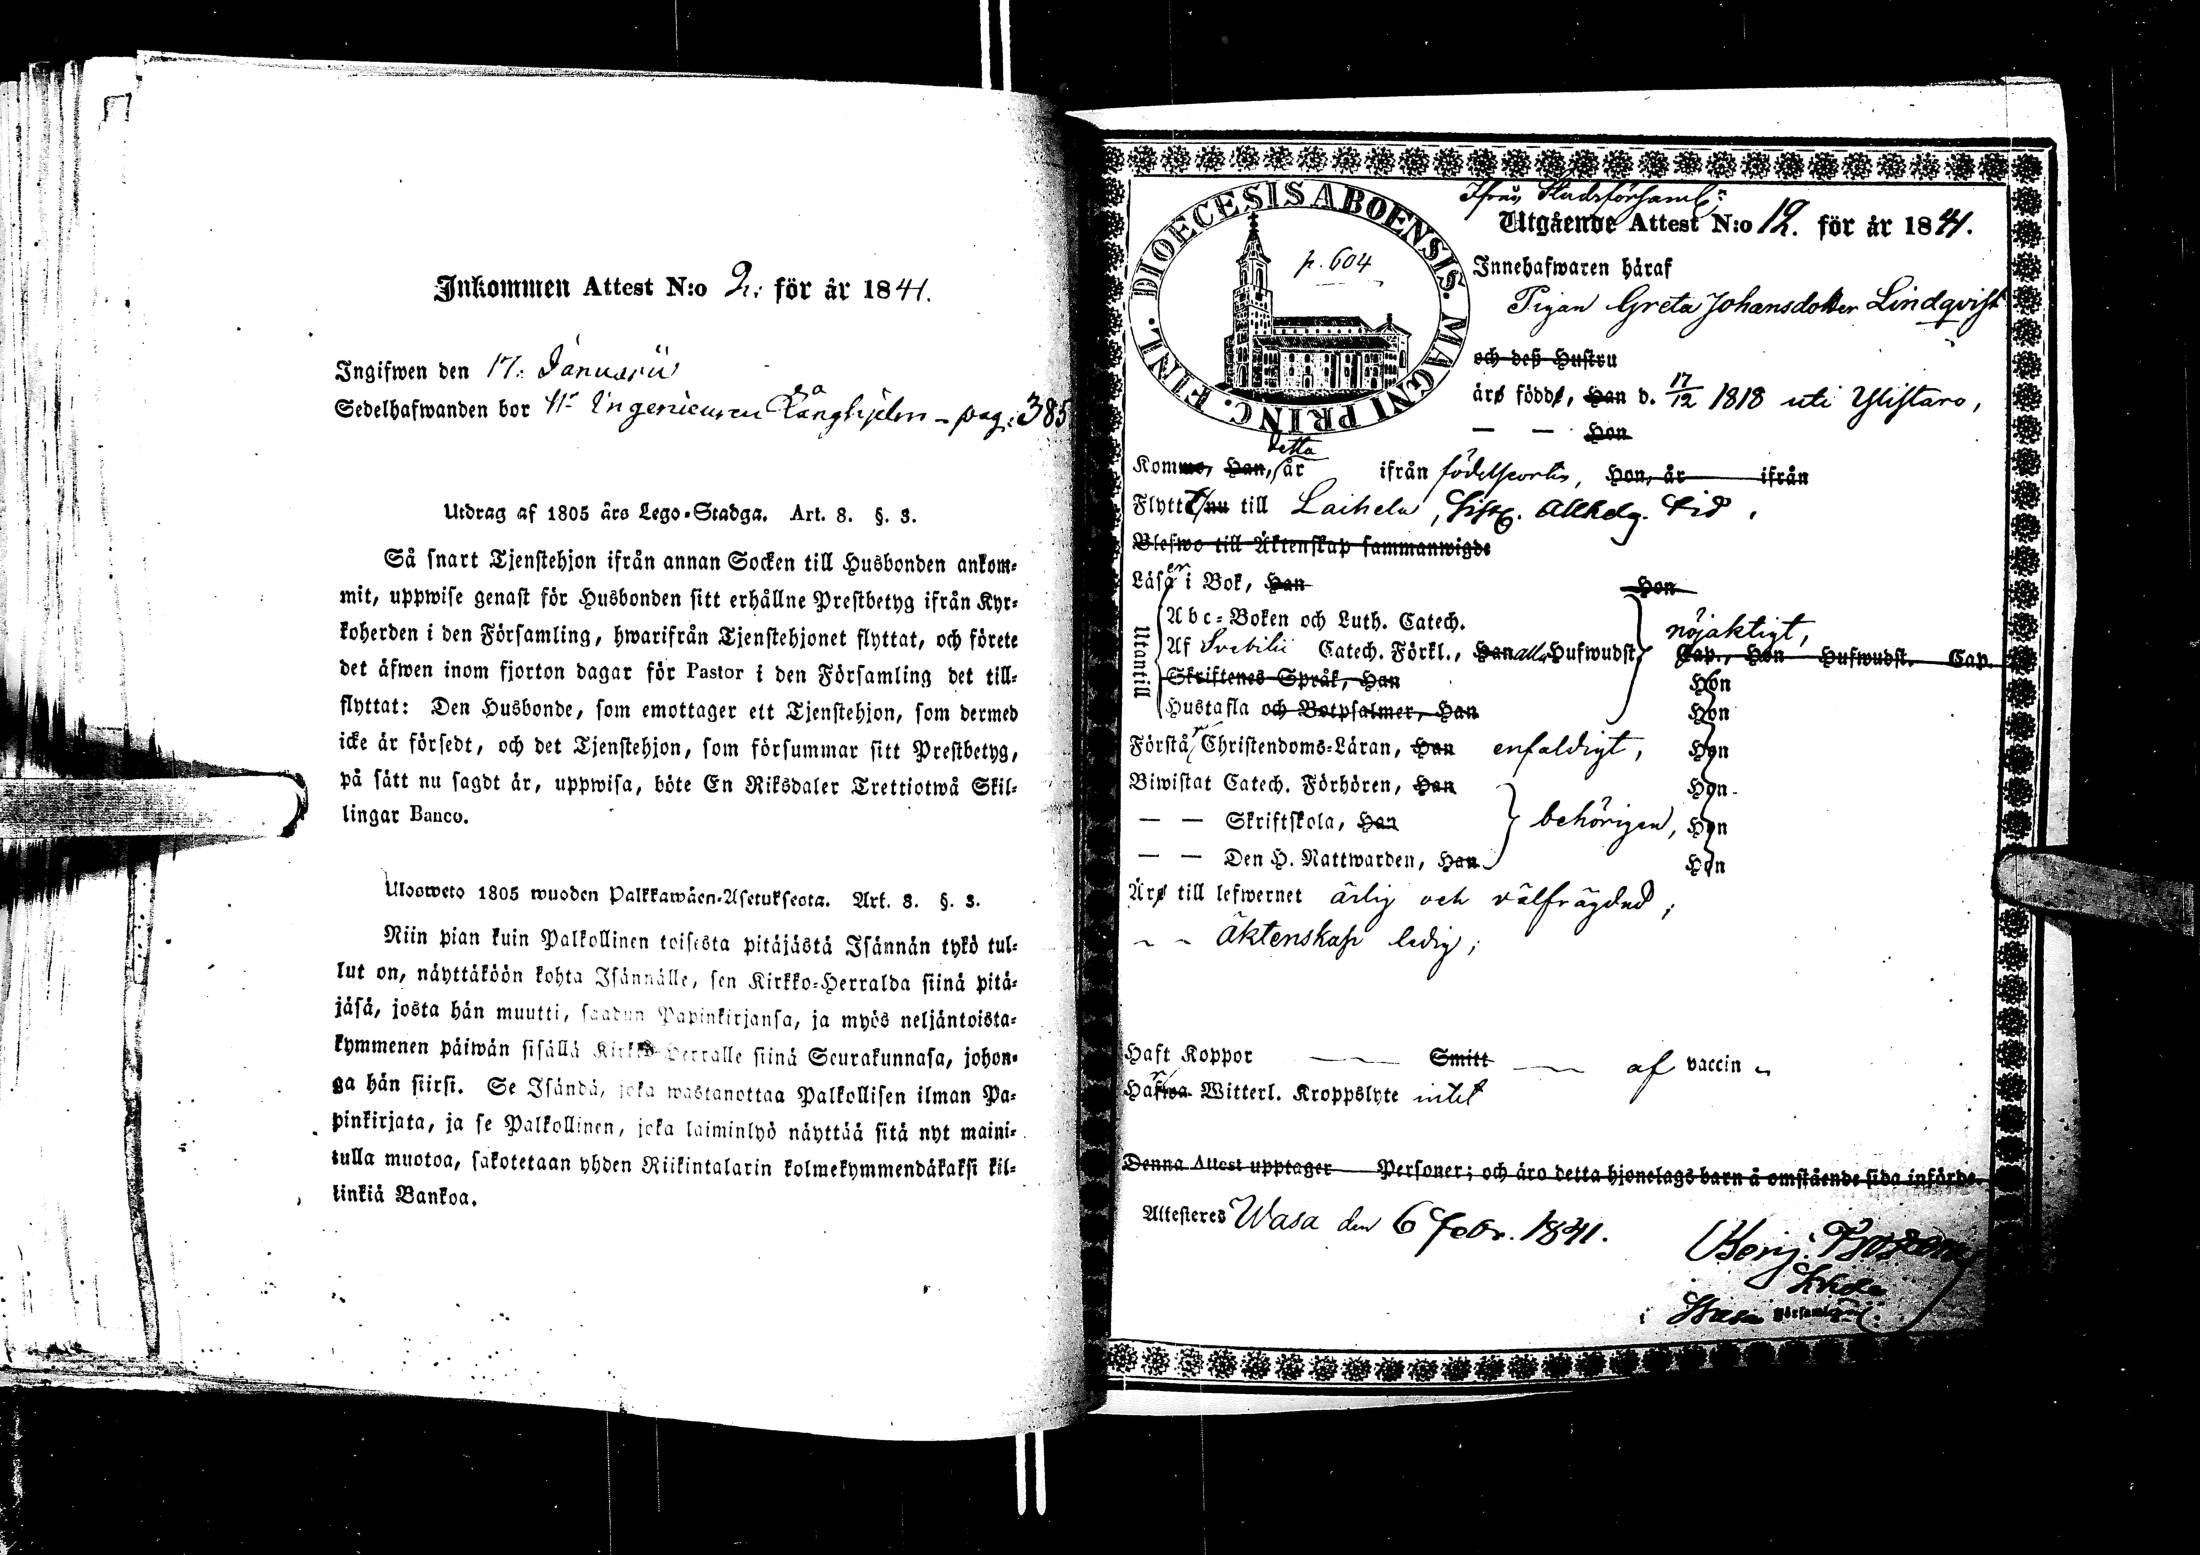 Inkommen Attest N:o 2. för år 1841.
Ingifwen den 17. Januarii
Sedelhafwanden bor Hr Ingenieuren Långhjelm - pag: 385
Utdrag af 1805 års Lego-Stadga. Art. 8. §. 3.
Så snart Tjenstehjon ifrån annan Socken till Husbonden ankom-
mit, uppwise genast för Husbonden sitt erhållne Prestbetyg ifrån Kyr-
koherden i den Församling, hwarifrån Tjenstehjonet flyttat, och förete
det äfwen inom fjorton dagar för Pastor i den Församling det till-
flyttat: Den Husbonde, som emottager ett Tjenstehjon, som dermed
icke är försedt, och det Tjenstehjon, som försummar sitt Prestbetyg,
på sätt nu sagdt är, uppwisa, böte En Riksdaler Trettiotwå Skil-
lingar Banco.
Ulosweto 1805 wuoden Palkkawäen-Asetuksesta. Art. 8. §. 3.
Niin pian kuin Palkollinen toisesta pitäjästä Isännän tykö tul-
lut on, näyttäköön kohta Isännälle, sen Kirkko-Herralda siinä pitä-
jäsä, josta hän muutti, saadun Papinkirjansa, ja myös neljäntoista-
kymmenen päiwän sisällä Kirkko-Herralle siinä Seurakunnasa, johon-
ga hän siirsi. Se Isändä, joka wastanottaa Palkollisen ilman Pa-
pinkirjata, ja se Palkollinen, joka laiminlyö näyttää sitä nyt maini-
tulla muotoa, sakotetaan yhden Riikintalarin kolmekymmendäkaksi kil-
linkiä Bankoa.
DIOECESIS ABOENSIS. MAGNI PRINC. FINL.
p. 604
Ifrån Stadsförsaml:n
Utgående Attest N:o 12. för år 1841.
Innehafwaren häraf
Pigan Greta Johansdotter Lindqvist
och deß Hustru
äro född, Han d. 17/12 1818 uti Ylistaro,
— — Hon
Komne, Han, detta år ifrån födelseorten, Hon, år ifrån
Flytt nu till Laihela, sist. Allhelg. tid.
Blefwo till Äktenskap sammanwigde
Läsa i Bok, Han Hon
Utantill
Abc-Boken och Luth. Catech. nöjaktigt,
Af Svebilii Catech. Förkl., Han alla Hufwudst. Cap., Hon Hufwudst. Cap.
Skriftenes Språk, Han Hon
Hustafla och Botpsalmer, Han Hon
Förstår Christendoms-Läran, Han enfaldigt, Hon
Biwistat Catech. Förhören, Han Hon
— — Skriftskola, Han behörigen, Hon
— — Den H. Nattwarden, Han Hon
Äro till lefwernet ärlig och välfrägdad;
- - Äktenskap ledig;
Haft Koppor — Smitt — af vaccin
Hafwa Witterl. Kroppslyte intet
Denna Attest upptager Personer; och äro detta hjonelags barn å omstående sida införde.
Attesteres Wasa den 6 Febr. 1841.
Benj.
i Wasa Församl.